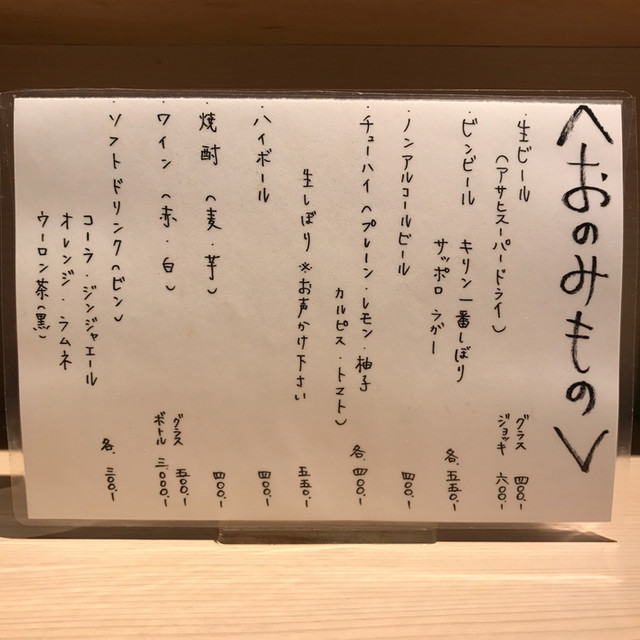 〈おのみもの〉
・生ビール グラス 四00.-
(アサヒスーパードライ) ジョッキ 六00.-
・ビンビール キリン一番しぼり 各.五五0.-
サッポロ ラガー
・ノンアルコールビール 四00.-
・チューハイ(プレーン・レモン・柚子 各.四00.-
カルピス・トマト)
生しぼり ※お声かけ下さい 五五0.-
・ハイボール 四00.-
・焼酎 (麦・芋) 四00.-
・ワイン (赤・白) グラス 五00.-
ボトル 三,000.-
・ソフトドリンク(ビン) 各.三00.-
コーラ・ジンジャエール
オレンジ・ラムネ
ウーロン茶(黒)